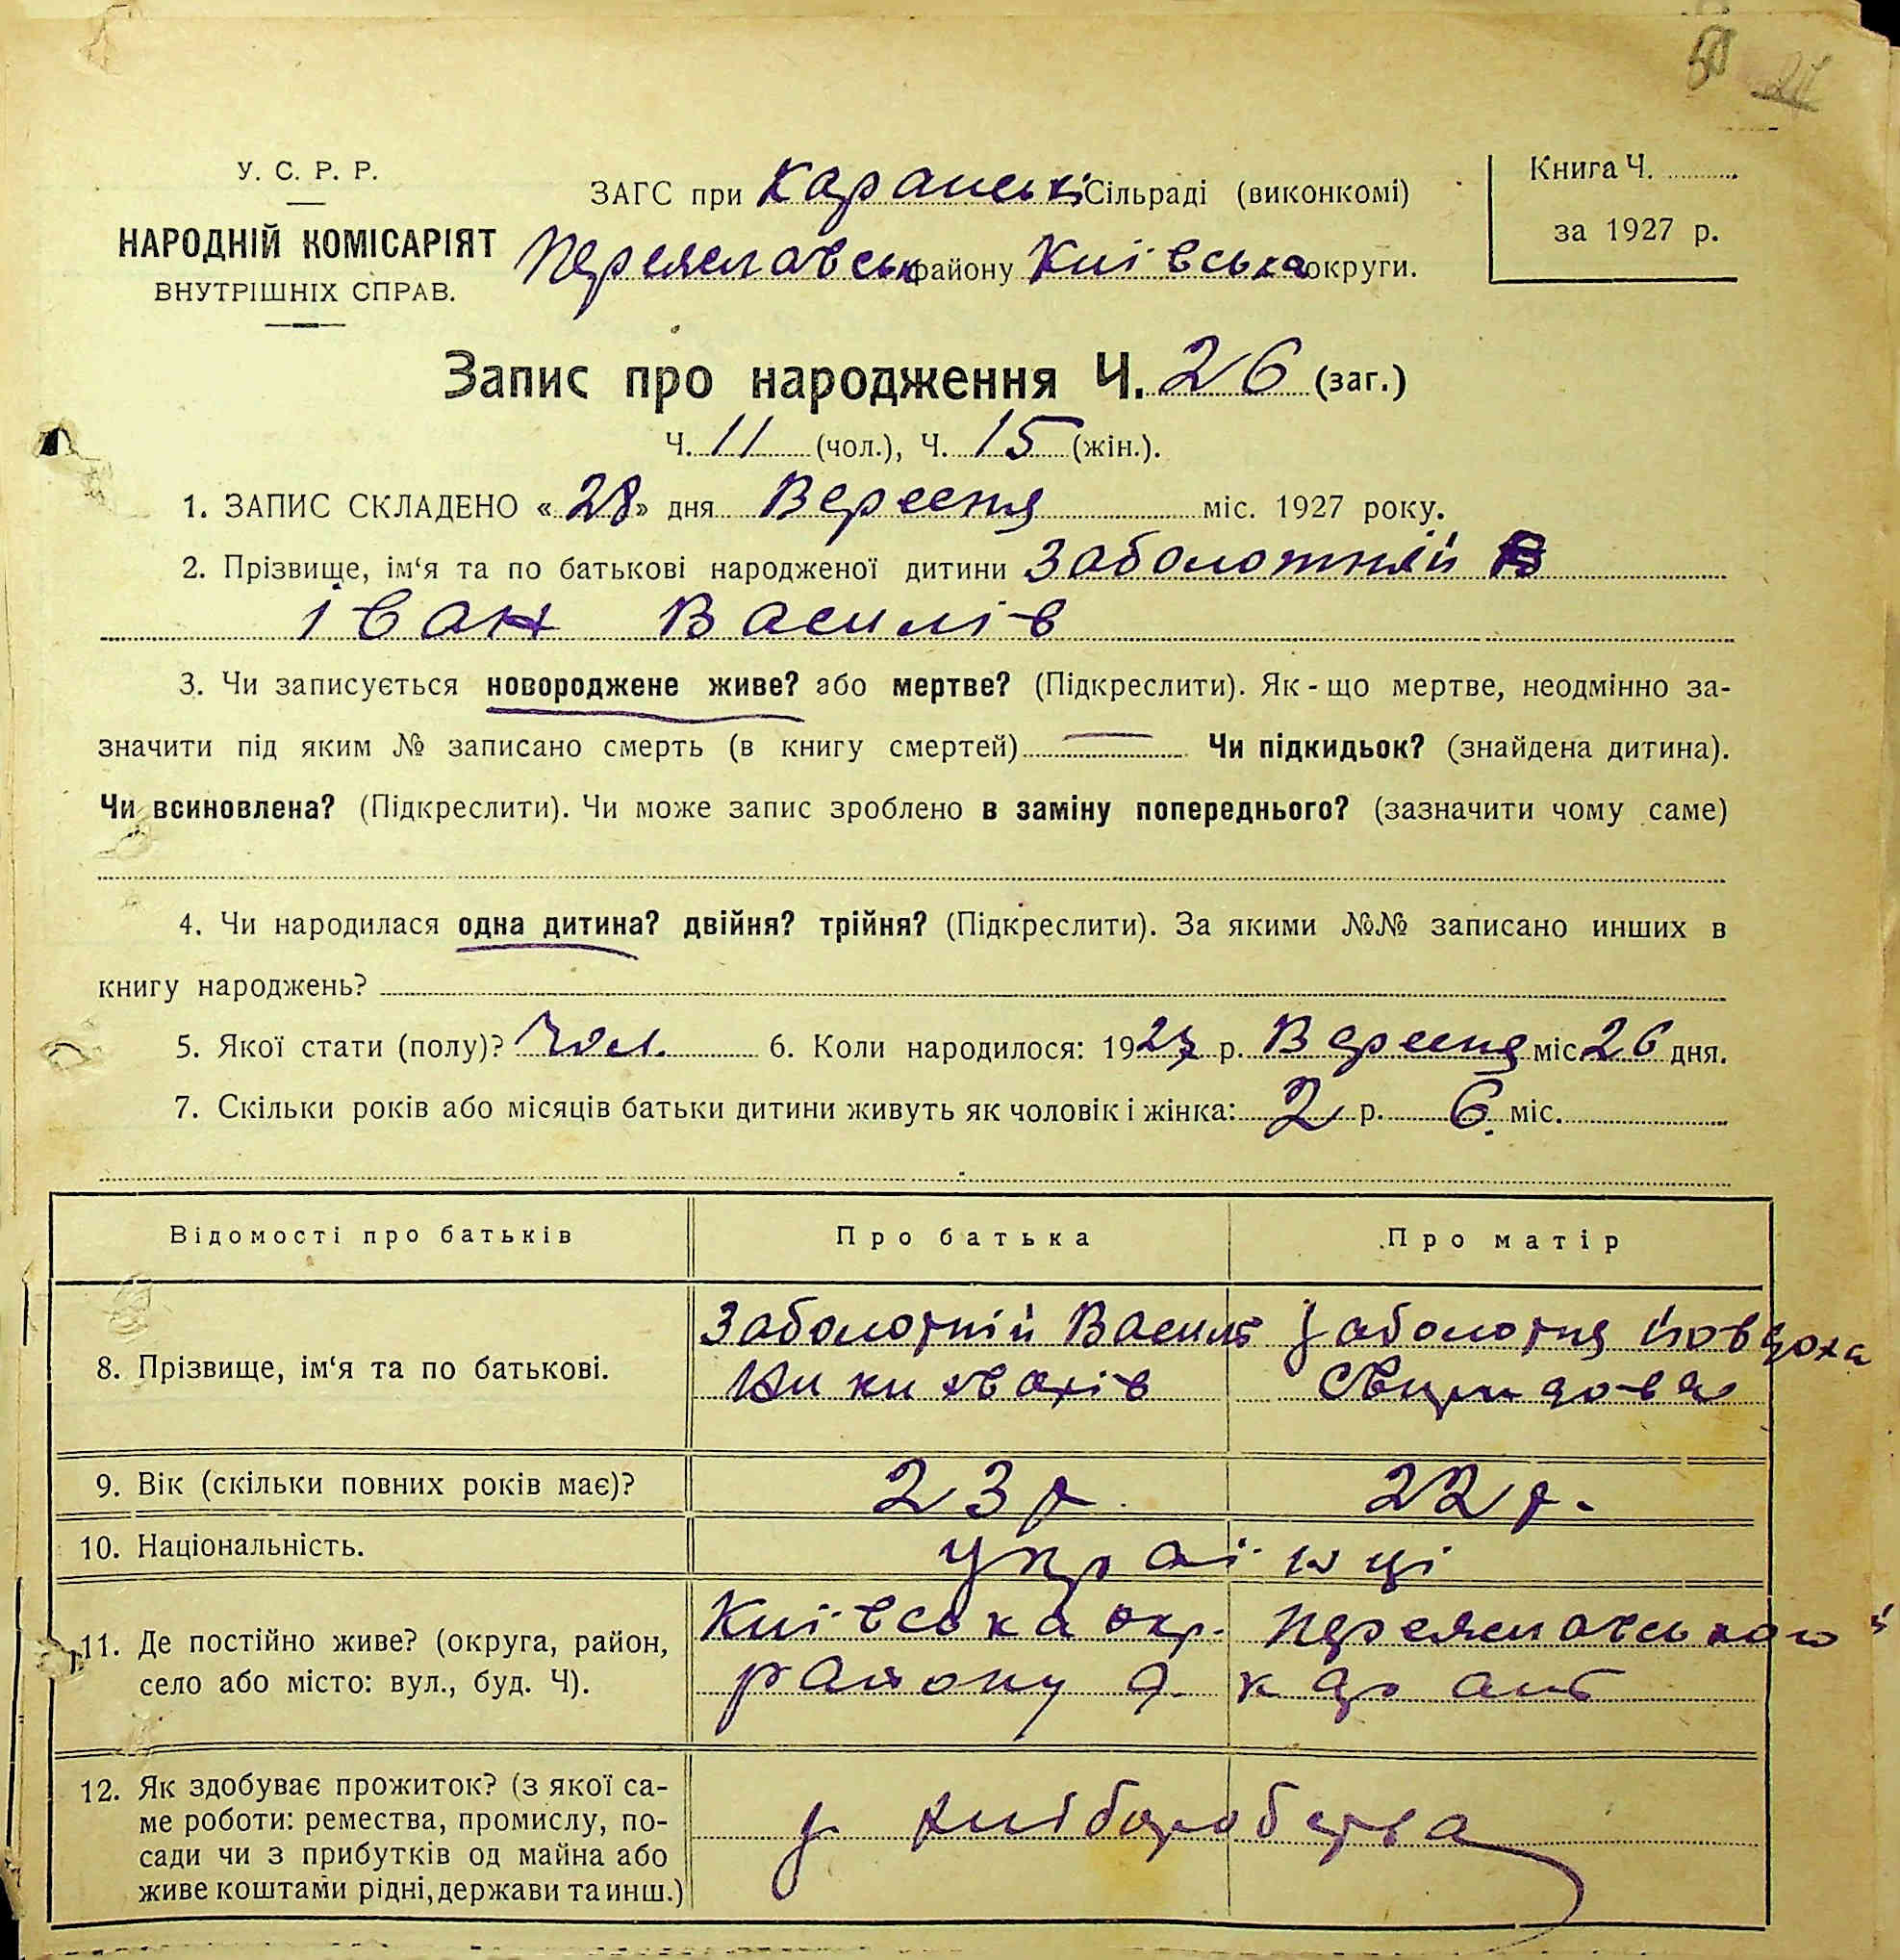 50 27
У. С. Р. Р.
НАРОДНІЙ КОМІСАРІЯТ
ВНУТРІШНІХ СПРАВ.
ЗАГС при Каранські Сільраді (виконкомі)
Переяславськ району Київська округи.
Книга Ч.
за 1927 р.
Запис про народження Ч. 26 (заг.)
Ч. 11 (чол.), Ч. 15 (жін.).
1. ЗАПИС СКЛАДЕНО «28» дня Вересня міс. 1927 року.
2. Прізвище, ім‘я та по батькові народженої дитини Заболотній
Іван Василів
3. Чи записується новороджене живе? або мертве? (Підкреслити). Як-що мертве, неодмінно за-
значити під яким № записано смерть (в книгу смертей) — Чи підкидьок? (знайдена дитина).
Чи всиновлена? (Підкреслити). Чи може запис зроблено в заміну попереднього? (зазначити чому саме)
4. Чи народилася одна дитина? двійня? трійня? (Підкреслити). За якими №№ записано инших в
книгу народжень?
5. Якої стати (полу)? Чол. 6. Коли народилося: 1927 р. Вересня міс. 26 дня.
7. Скільки років або місяців батьки дитини живуть як чоловік і жінка: 2 р. 6 міс.
Відомості про батьків Про батька Про матір
8. Прізвище, ім‘я та по батькові.
Заболотній Василь
Заболотня Йовдоха
Свиридова
9. Вік (скільки повних років має)? 23 р. 22 р.
10. Національність. українці
11. Де постійно живе? (округа, район,
село або місто: вул., буд. Ч).
Київська окр. Переяславського
району с. Карань
12. Як здобуває прожиток? (з якої са-
ме роботи: ремества, промислу, по-
сади чи з прибутків од майна або
живе коштами рідні, держави та инш.)
з хліборобства